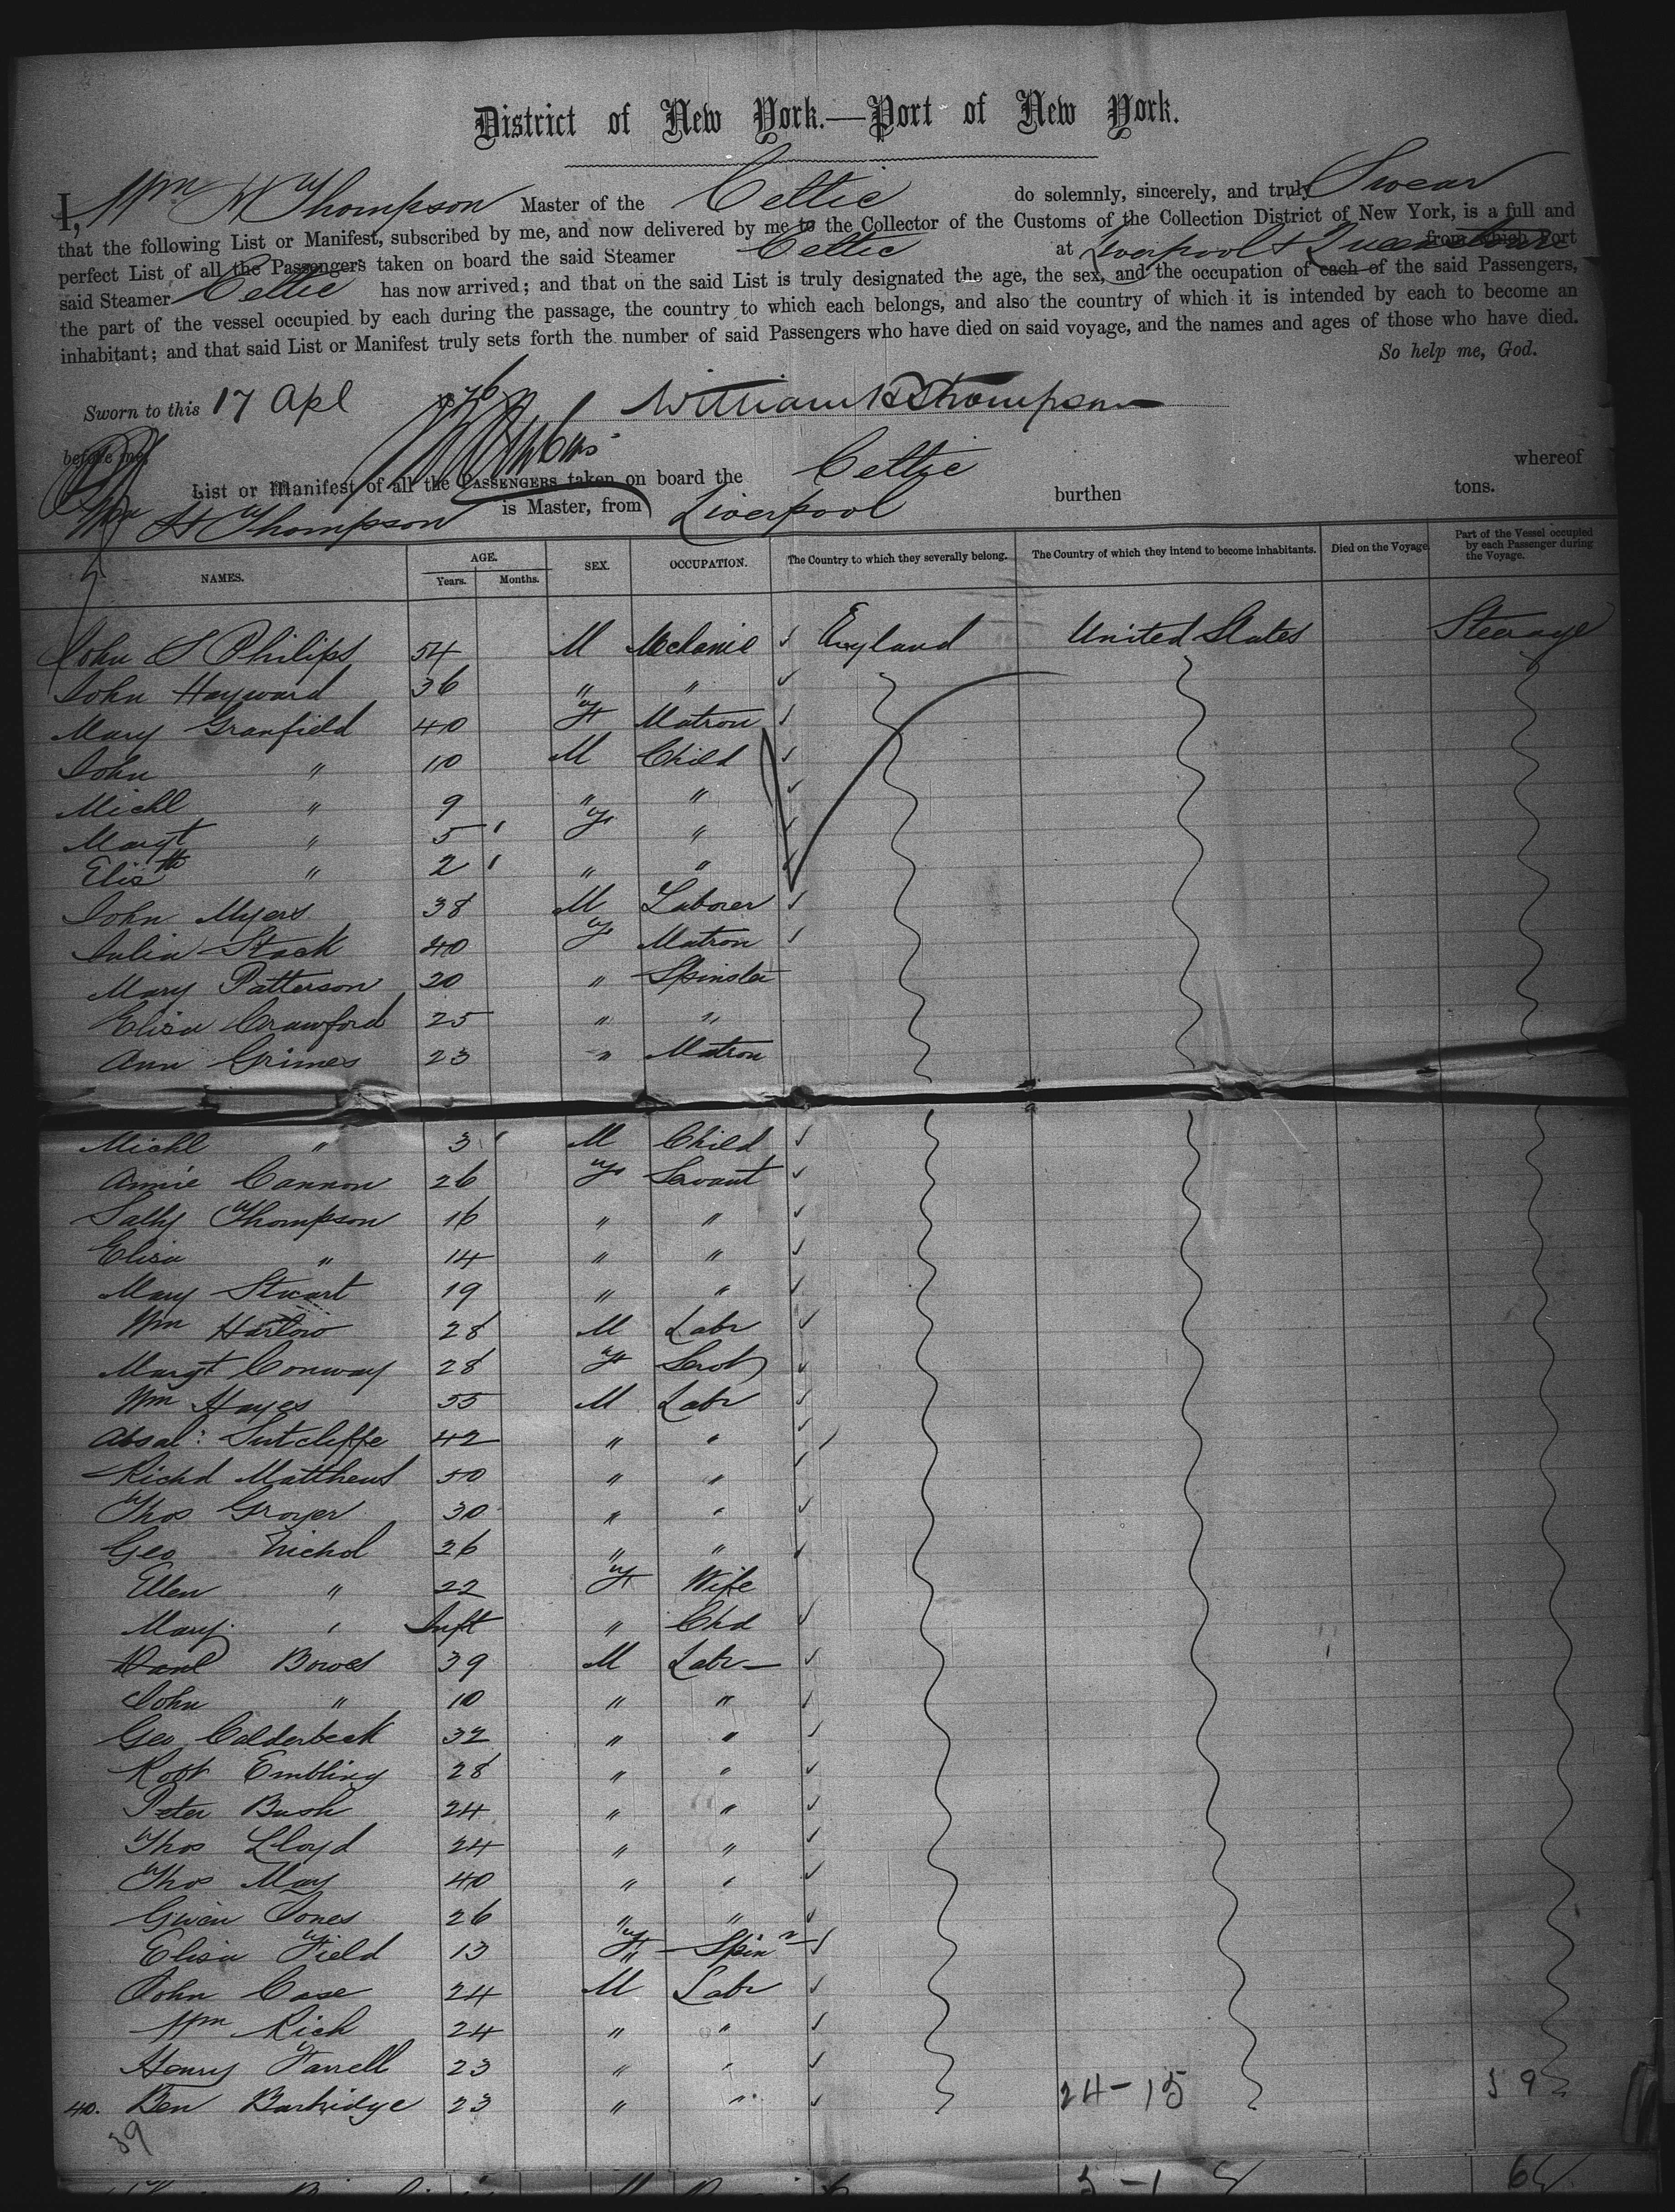 District of New York.—Port of New York.
I, Wm H Thompson Master of the Celtic do solemnly, sincerely, and truly Swear
that the following List or Manifest, subscribed by me, and now delivered by me to the Collector of the Customs of the Collection District of New York, is a full and
perfect List of all the Passengers taken on board the said Steamer Celtic at Liverpool & from which Port
said Steamer Celtic has now arrived; and that on the said List is truly designated the age, the sex, and the occupation of each of the said Passengers,
the part of the vessel occupied by each during the passage, the country to which each belongs, and also the country of which it is intended by each to become an
inhabitant; and that said List or Manifest truly sets forth the number of said Passengers who have died on said voyage, and the names and ages of those who have died.
So help me, God.
Sworn to this 17 Apl 1876 William H Thompson
before me,
List or Manifest of all the PASSENGERS taken on board the Celtic whereof
Wm H Thompson is Master, from Liverpool burthen tons.
NAMES. AGE. Years. Months. SEX. OCCUPATION. The Country to which they severally belong. The Country of which they intend to become inhabitants. Died on the Voyage. Part of the Vessel occupied by each Passenger during the Voyage.
John S Philips 54 M Mechanic England United States Steerage
John Hayward 36 " "
Mary Granfield 40 F Matron
John " 10 M Child
Michl " 9 " "
Margt " 5 F "
Elisth " 2 " "
John Myers 38 M Laborer
Julia Stack 40 F Matron
Mary Patterson 20 " Spinster
Eliza Crawford 25 " "
Ann Grimes 23 " Matron
Michl " 3 M Child
Annie Cannon 26 F Servant
Sally Thompson 16 " "
Eliza " 14 " "
Mary Stuart 19 " "
Wm Harlow 28 M Labr
Margt Conway 28 F Servt
Wm Hayes 55 M Labr
Absal: Sutcliffe 42 " "
Richd Matthews 50 " "
Thos Groyer 30 " "
Geo Nichol 26 " "
Ellen " 22 F Wife
Mary " Inft " Chd
Danl Bowes 39 M Labr
John " 10 " "
Geo Calderbeck 32 " "
Robt Embling 28 " "
Peter Bush 24 " "
Thos Lloyd 24 " "
Thos May 40 " "
Gwen Jones 26 " "
Eliza Field 13 F Spinr
John Case 24 M Labr
Wm Rich 24 " "
Henry Farrell 23 " "
40. Ben Burbidge 23 " " 24-15 39
39